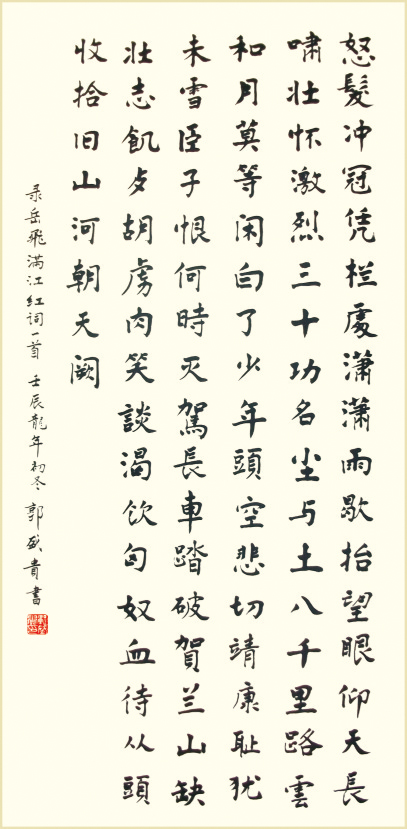 怒髮冲冠凭栏處潇潇雨歇抬望眼仰天長
嘯壮怀激烈三十功名尘与土八千里路雲
和月莫等闲白了少年頭空悲切靖康耻犹
未雪臣子恨何時灭駕長車踏破賀兰山缺
壮志飢歺胡虏肉笑談渴饮匈奴血待从頭
收拾旧山河朝天阙
录岳飛满江红词一首 壬辰龍年初冬 郭盛貴書